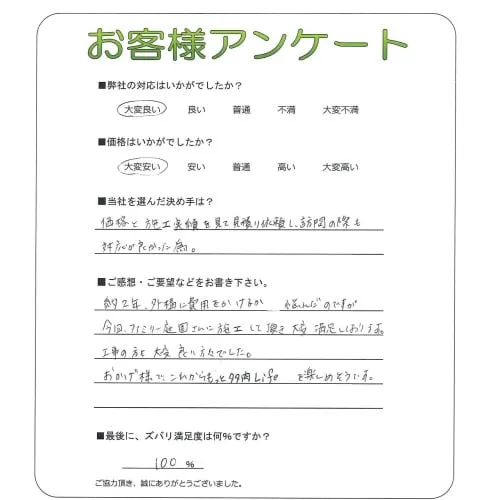 お客様アンケート
■弊社の対応はいかがでしたか？
大変良い 良い 普通 不満 大変不満
■価格はいかがでしたか？
大変安い 安い 普通 高い 大変高い
■当社を選んだ決め手は？
価格と施工実績を見て見積り依頼し、訪問の際も
対応が良かった為。
■ご感想・ご要望などをお書き下さい。
約2年、外構に費用をかけるか 悩んだのですが
今回、ファミリー庭園さんに施工して頂き大変満足しております。
工事の方も大変良い方々でした。
おかげ様で、これからもっと多肉Lifeを楽しめそうです。
■最後に、ズバリ満足度は何%ですか？
100 %
ご協力頂き、誠にありがとうございました。